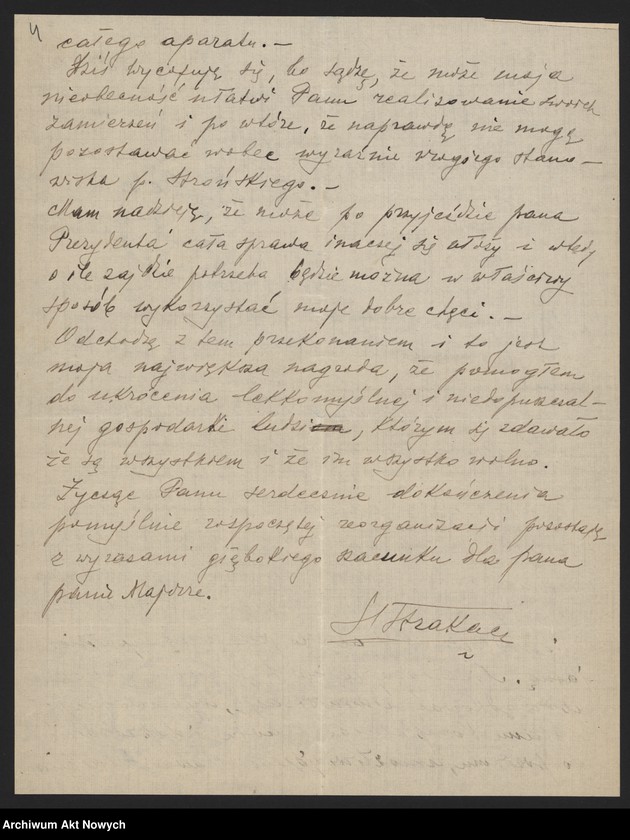 4
całego aparatu. —
Dziś wycofuję się, bo sądzę, że może moja
nieobecność ułatwi Panu realizowanie swoich
zamierzeń i po wtóre, że naprawdę nie mogę
pozostawać wobec wyraźnie wrogiego stano —
wiska p. Strońskiego. —
Mam nadzieję, że może po przyjeździe pana
Prezydenta cała sprawa inaczej się ułoży i wtedy
o ile zajdzie potrzeba będzie można w właściwy
sposób wykorzystać moje dobre chęci. —
Odchodzę z tem przekonaniem i to jest
moja największa nagroda, że pomogłem
do ukrócenia lekkomyślnej i niedopuszczal-
nej gospodarki ludzi, którym się zdawało
że są wszystkiem i że im wszystko wolno.
Życząc Panu serdecznie dokończenia
pomyślnie rozpoczętej reorganizacji pozostaję
z wyrazami głębokiego szacunku dla pana
panie Majorze.
STrakacz
Archiwum Akt Nowych